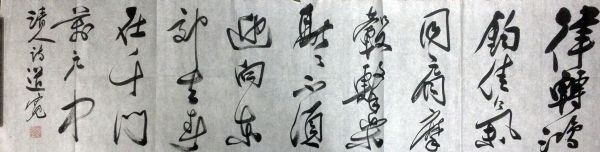 律轉鴻
鈞佳氣
同肩摩
轂擊樂
融〻不須
迎向東
郊去春
在千門
萬户中
清人詩道寬